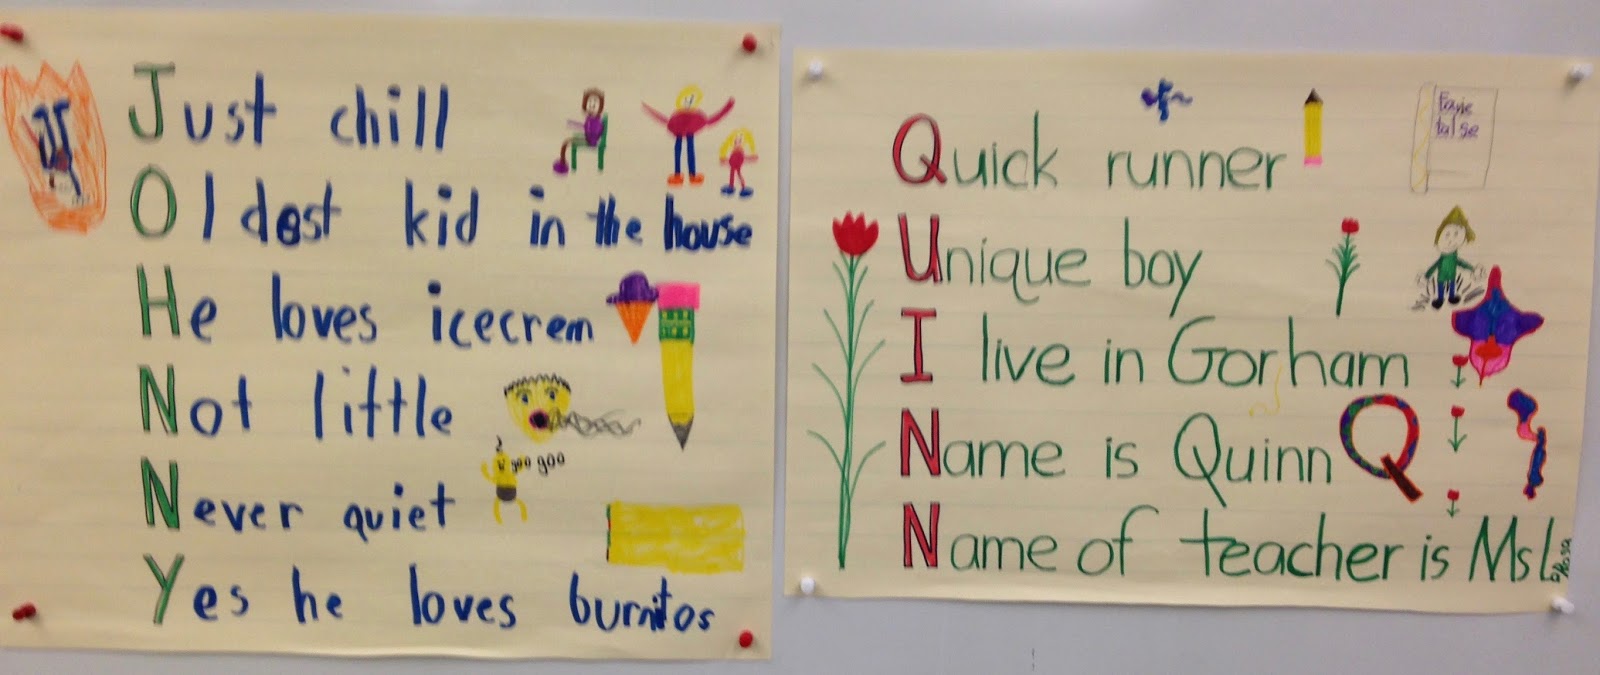 Just chill
Oldest kid in the house
He loves icecrem
Not little
goo goo
Never quiet
Yes he loves burritos
Quick runner
Unique boy
I live in Gorham
Name is Quinn Q
Name of teacher is Ms L